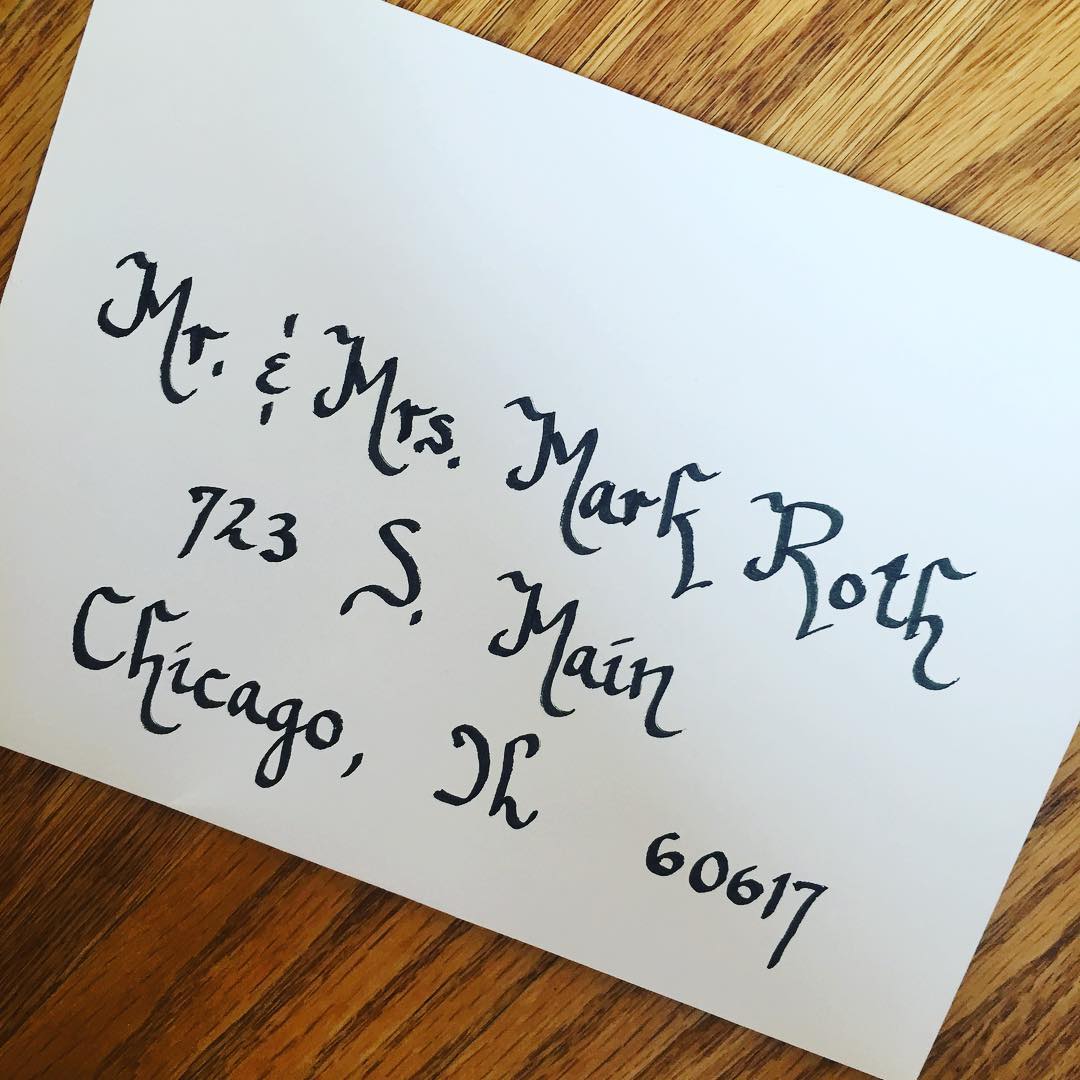 Mr. & Mrs. Mark Roth
723 S. Main
Chicago, Ih 60617